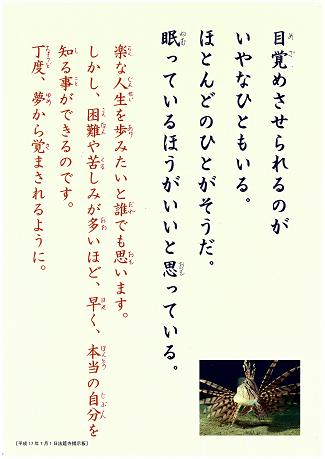 目覚めさせられるのが
いやなひともいる。
ほとんどのひとがそうだ。
眠っているほうがいいと思っている。
楽な人生を歩みたいと誰でも思います。
しかし、困難や苦しみが多いほど、早く、本当の自分を
知る事ができるのです。
丁度、夢から覚まされるように。